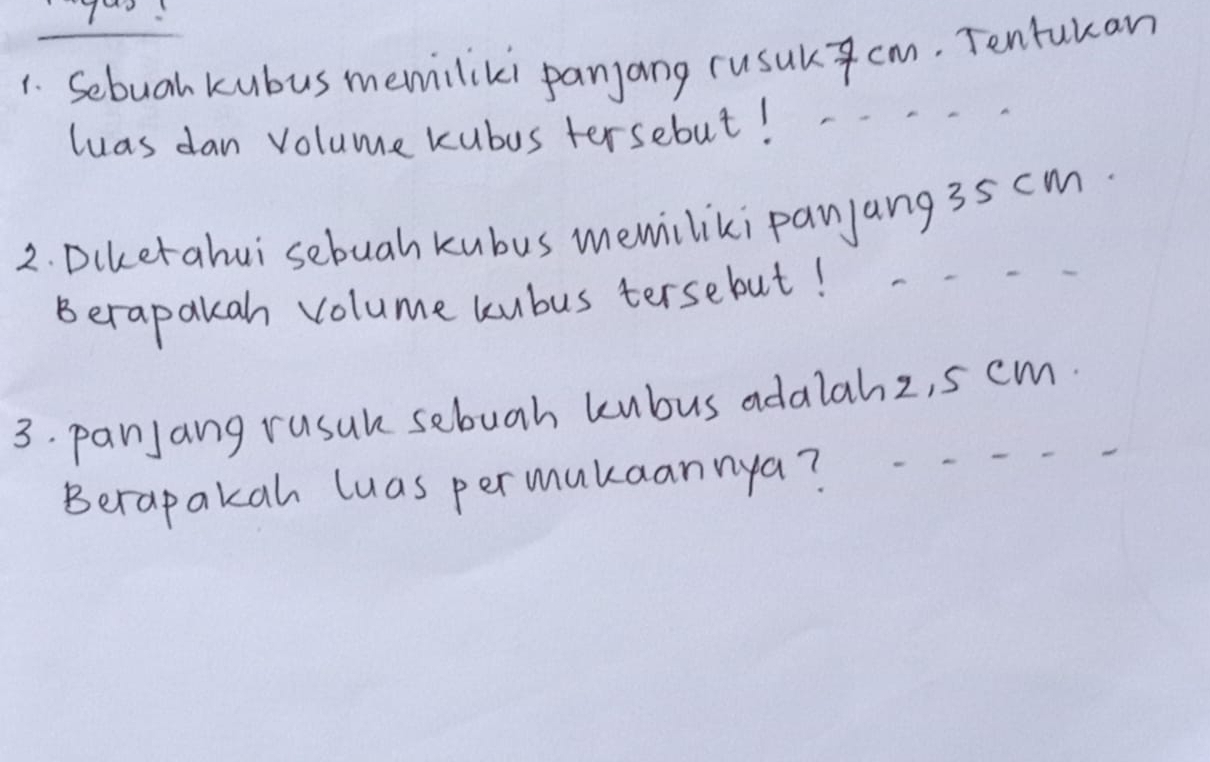 1. Sebuah kubus memiliki panjang rusuk 7 cm. Tentukan
luas dan volume kubus tersebut! - - - - -
2. Diketahui sebuah kubus memiliki panjang 35 cm.
Berapakah volume kubus tersebut! - - - -
3. panjang rusuk sebuah kubus adalah 2,5 cm.
Berapakah luas permukaannya? - - - - -